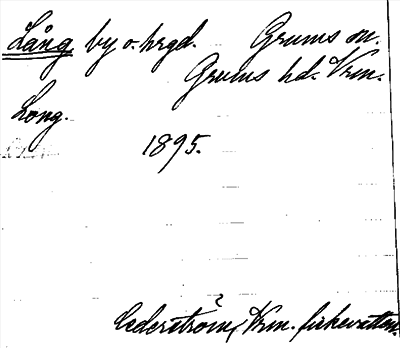 Lång by o. hrgd. Grums sn.
Grums hd. Vrm.
Long.
1895.
Cederström, Vrm. fiskevatten.